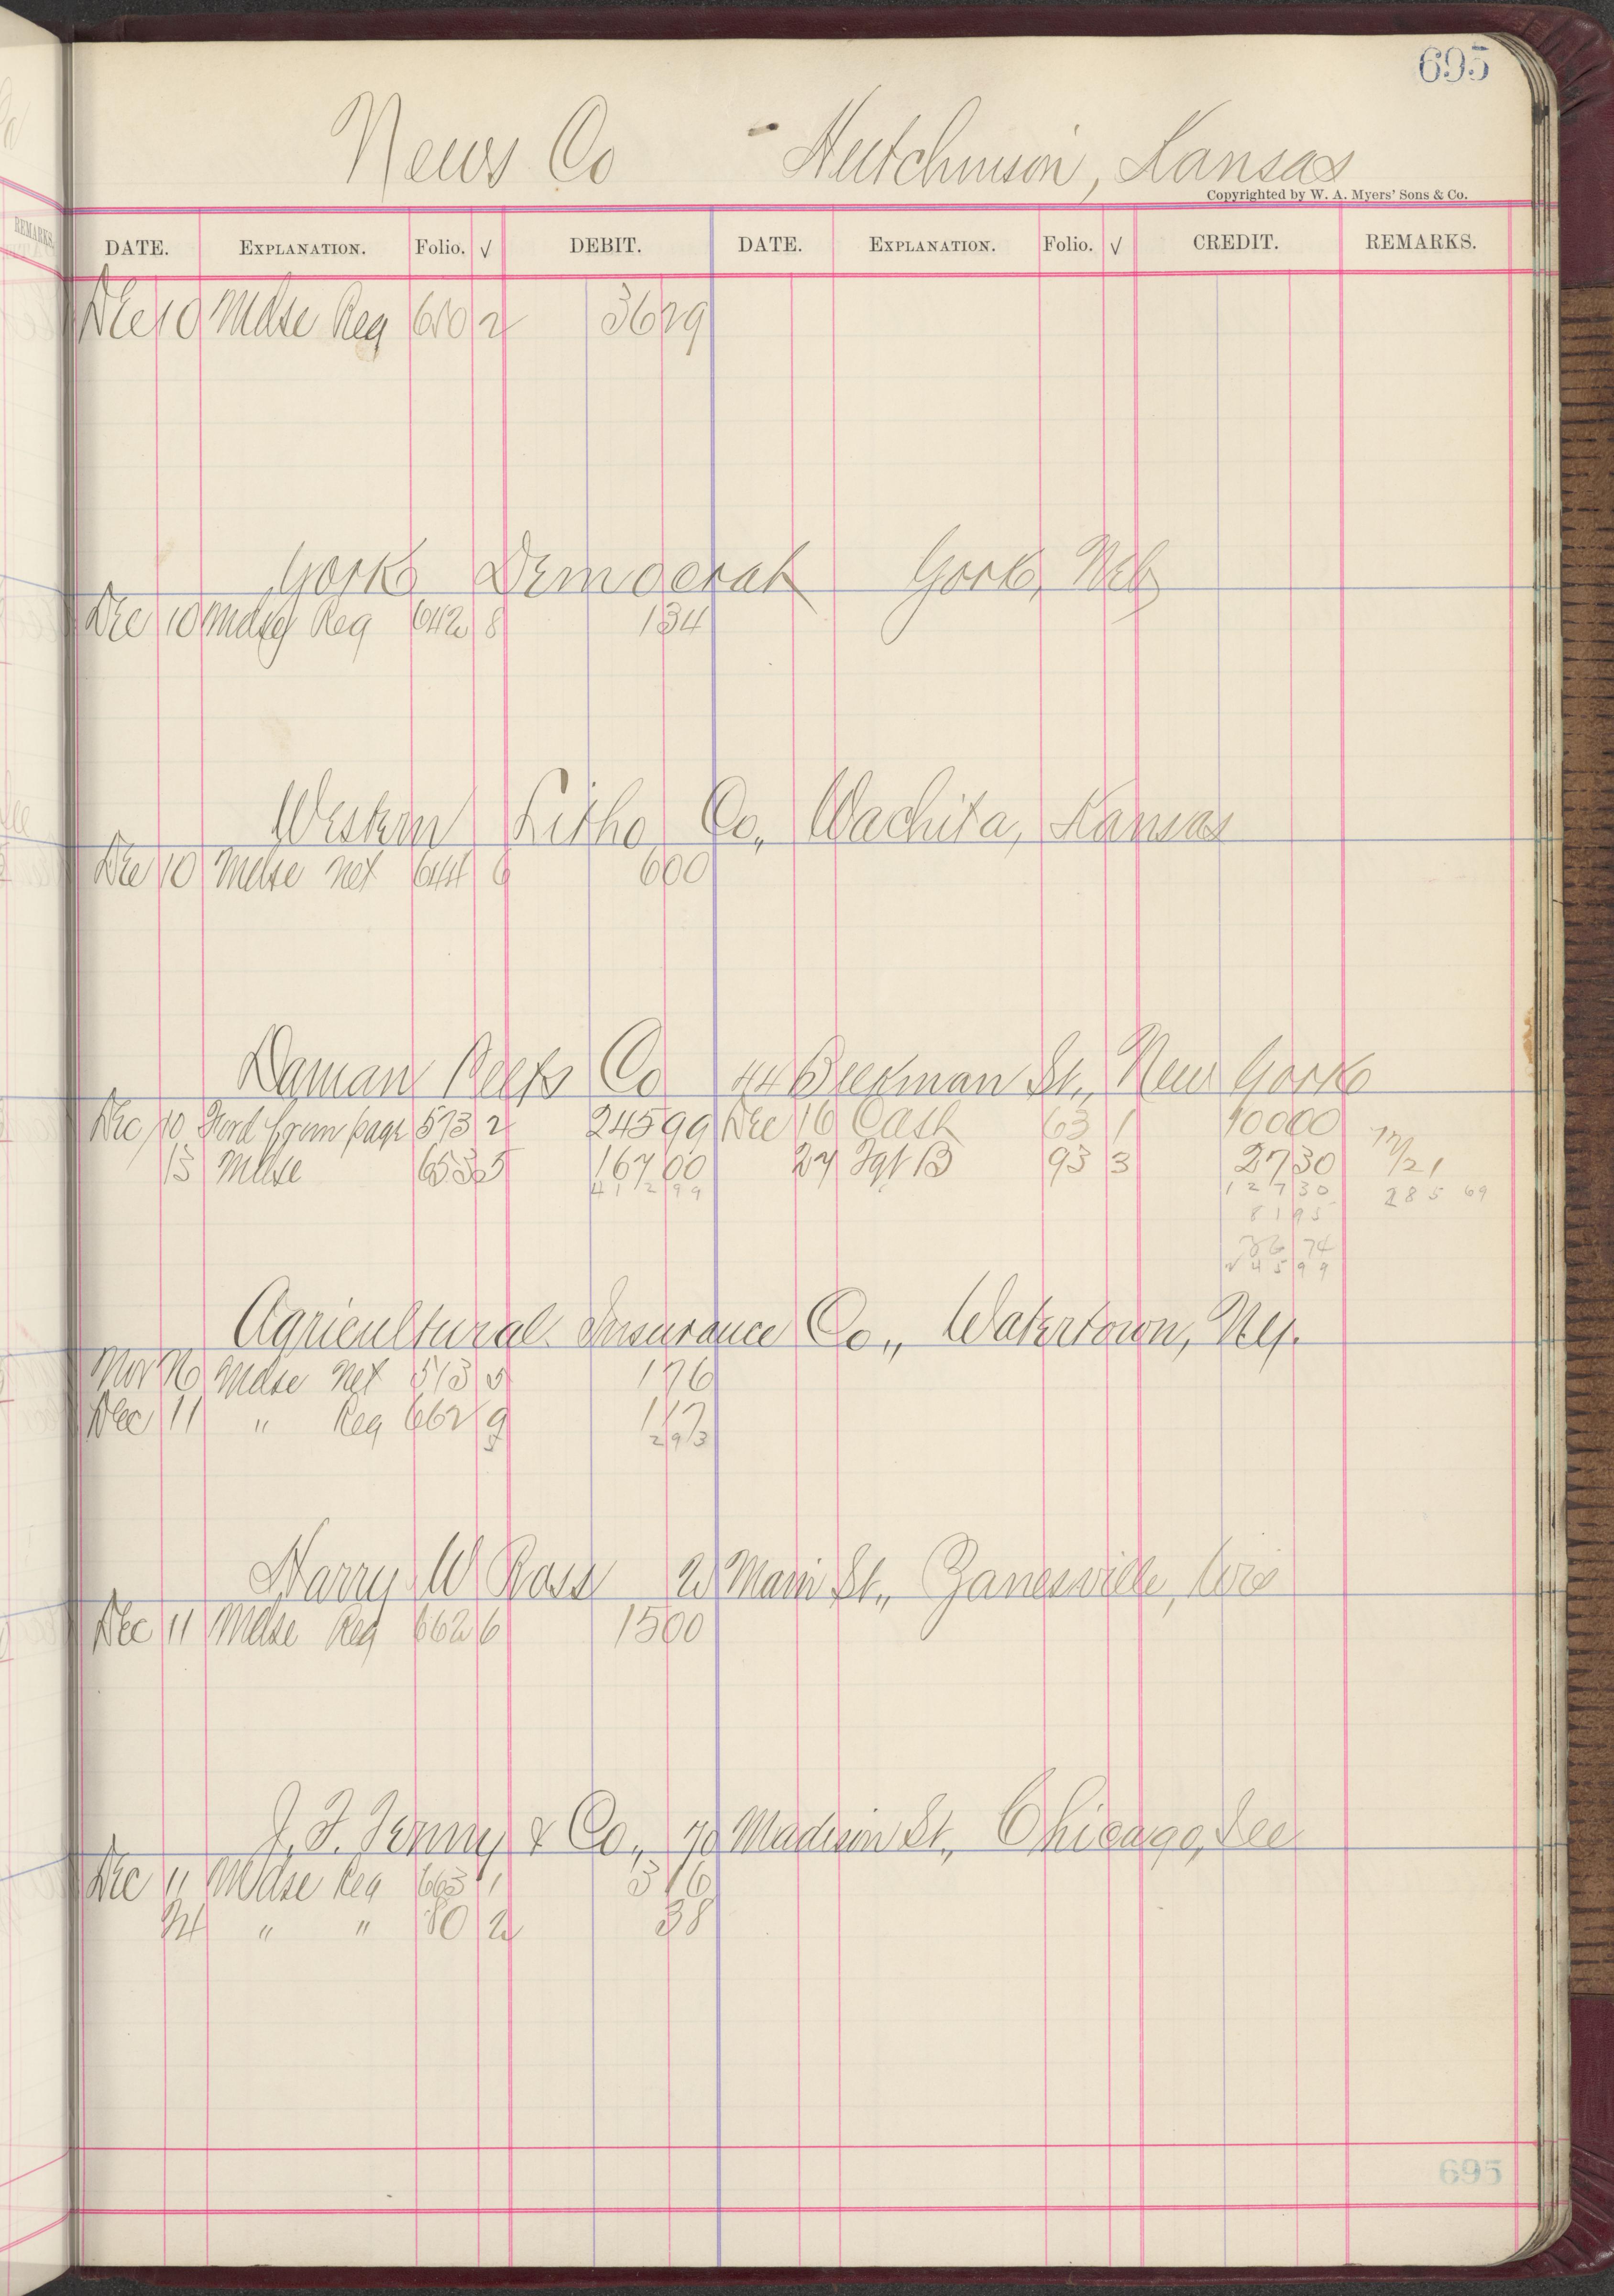 695
News Co Hutchinson, Kansas
Copyrighted by W. A. Myers' Sons & Co.
DATE. EXPLANATION. Folio. √ DEBIT. DATE. EXPLANATION. Folio. √ CREDIT. REMARKS.
Dec 10 Mdse Reg 2 3629
York Democrat York, Neb
Dec 10 Mdse Reg 642 8 134
Western Litho Co, Wachita, Kansas
Dec 10 Mdse Net 644 6 600
Co 44 Beekman St., New York
Dec 10 Ford from page 573 2 24599 Dec 16 Cash 63 1 10000
15 Mdse 653 5 16700 27 B 93 3 2730 21
41299 12730 28569
8195
3674
4599
Agricultural Insurance Co., Watertown, Ny.
Nov Mdse Net 513 5 176
Dec 11 " Reg 662 9 117
293
Harry W Ross 2 Main St., Zanesville,
Dec 11 Mdse Reg 662 6 1500
J. F. & Co., 70 Madison St., Chicago, Ill
Dec 11 Mdse Reg 663 1 516
24 " " 80 2 38
695